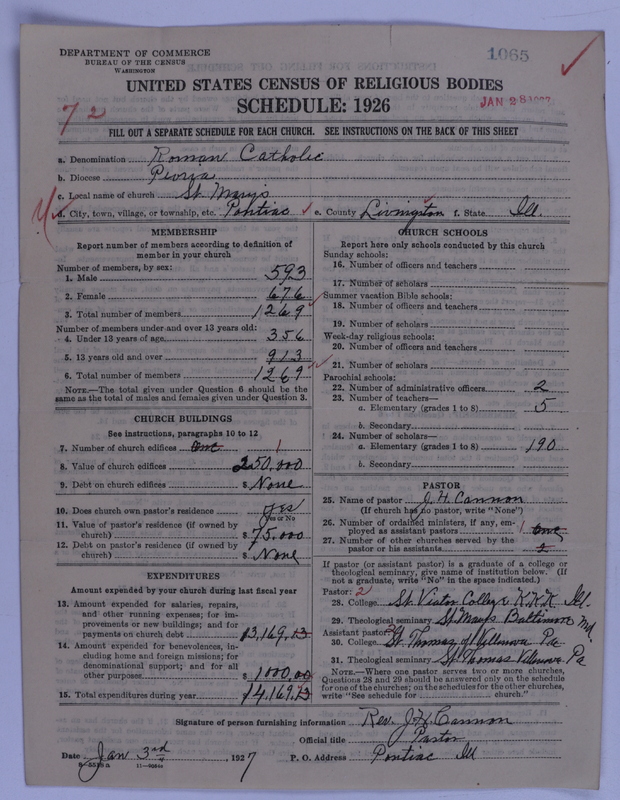 DEPARTMENT OF COMMERCE
BUREAU OF THE CENSUS
WASHINGTON
1065
UNITED STATES CENSUS OF RELIGIOUS BODIES
SCHEDULE: 1926
JAN 28 1927
72
FILL OUT A SEPARATE SCHEDULE FOR EACH CHURCH. SEE INSTRUCTIONS ON THE BACK OF THIS SHEET
a. Denomination Roman Catholic
b. Diocese Peoria
c. Local name of church St. Mary's
d. City, town, village, or township, etc. Pontiac e. County Livingston f. State Ill.
MEMBERSHIP
Report number of members according to definition of
member in your church
Number of members, by sex:
1. Male 593
2. Female 676
3. Total number of members 1269
Number of members under and over 13 years old:
4. Under 13 years of age 356
5. 13 years old and over 913
6. Total number of members 1269
NOTE.—The total given under Question 6 should be the
same as the total of males and females given under Question 3.
CHURCH BUILDINGS
See instructions, paragraphs 10 to 12
7. Number of church edifices one 1
8. Value of church edifices 250,000
9. Debt on church edifices $ None
10. Does church own pastor's residence yes
Yes or No
11. Value of pastor's residence (if owned by
church) $ 75,000
12. Debt on pastor's residence (if owned by
church) $ None
EXPENDITURES
Amount expended by your church during last fiscal year
13. Amount expended for salaries, repairs,
and other running expenses; for im-
provements or new buildings; and for
payments on church debt 13,169.13
14. Amount expended for benevolences, in-
cluding home and foreign missions; for
denominational support; and for all
other purposes $ 1000.00
15. Total expenditures during year $ 14,169.13
CHURCH SCHOOLS
Report here only schools conducted by this church
Sunday schools:
16. Number of officers and teachers
17. Number of scholars
Summer vacation Bible schools:
18. Number of officers and teachers
19. Number of scholars
Week-day religious schools:
20. Number of officers and teachers
21. Number of scholars
Parochial schools:
22. Number of administrative officers 2
23. Number of teachers—
a. Elementary (grades 1 to 8) 5
b. Secondary
24. Number of scholars—
a. Elementary (grades 1 to 8) 190
b. Secondary
PASTOR
25. Name of pastor J. H. Cannon
(If church has no pastor, write "None")
26. Number of ordained ministers, if any, em-
ployed as assistant pastors 1 one
27. Number of other churches served by the
pastor or his assistants
If pastor (or assistant pastor) is a graduate of a college or
theological seminary, give name of institution below. (If
not a graduate, write "No" in the space indicated.)
Pastor: 2
28. College St. Viator College K.K.K. Ill.
29. Theological seminary St. Mary's Baltimore Md.
Assistant pastor:
30. College St. Thomas of Villanova Pa
31. Theological seminary St. Thomas Villanova Pa
NOTE.—Where one pastor serves two or more churches,
Questions 28 and 29 should be answered only on the schedule
for one of the churches; on the schedules for the other churches,
write "See schedule for church."
Signature of person furnishing information Rev. J. H. Cannon
Official title Pastor
Date Jan 3rd, 1927 P. O. Address Pontiac Ill